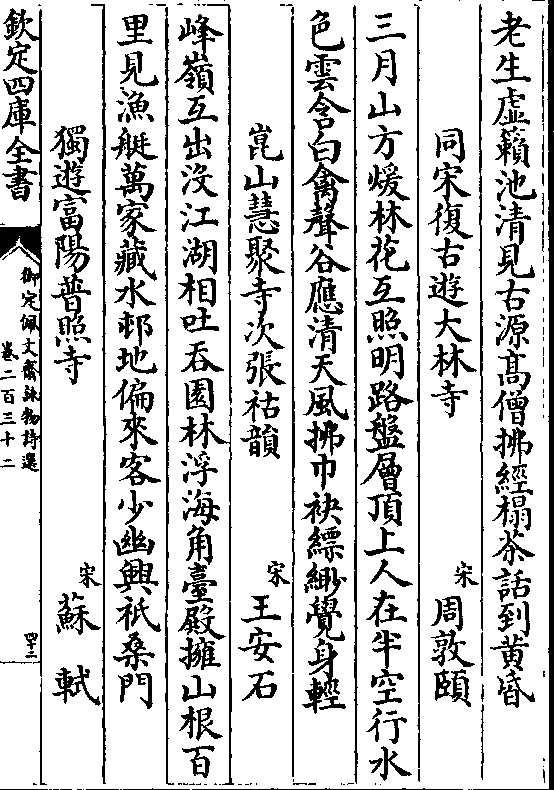 老生虛籟池清見古源髙僧拂經榻茶話到黄昏
同宋復古遊大林寺
宋　周敦頤
三月山方煖林花互照明路盤層頂上人在半空行水
色雲含白禽聲谷應清天風拂巾袂縹緲覺身輕
崑山慧聚寺次張祜韻
宋　王安石
峰嶺互出沒江湖相吐吞園林浮海角臺殿擁山根百
里見漁艇萬家藏水邨地偏來客少幽興祇桑門
獨遊富陽普照寺
宋　蘇軾
欽定四庫全書
御定佩文齋詠物詩選
卷二百三十二
四十三